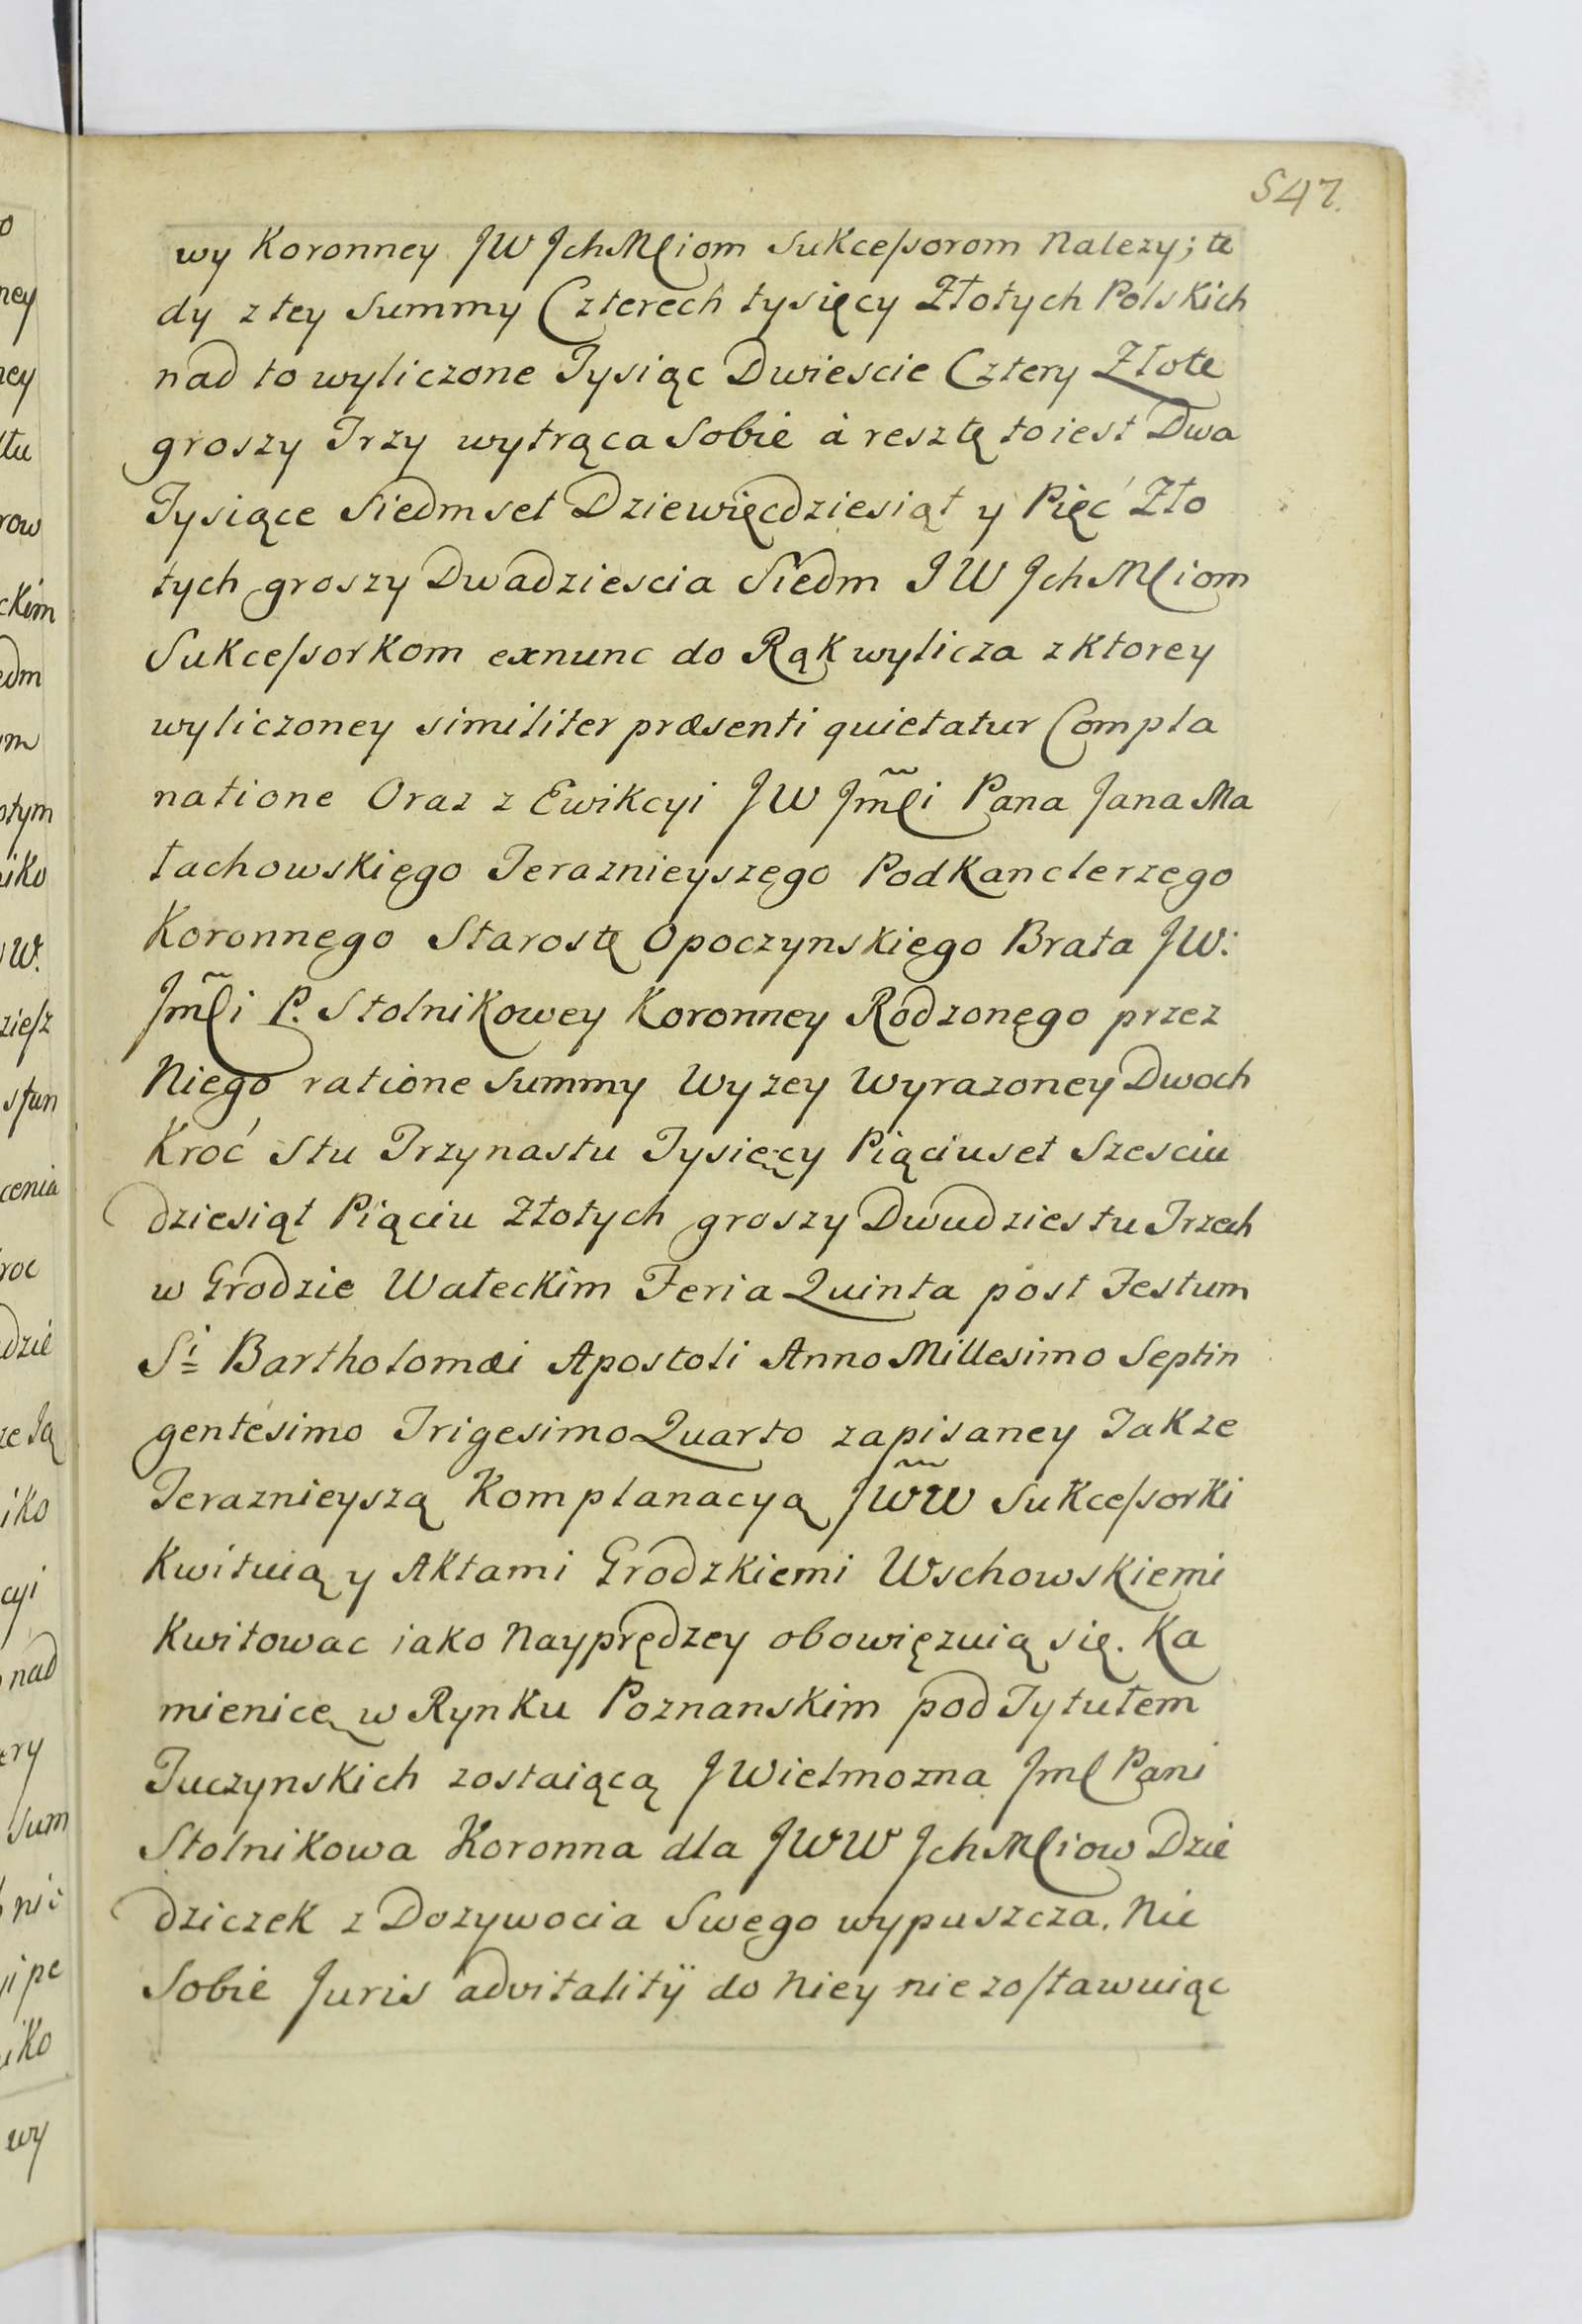 547.
wy Koronney JW JchMciom Sukceſsorom Nalezy; te
dy z tey Summy Czterech tysięcy Złotych Polskich
nad to wyliczone Tysiąc Dwiescie Cztery Złote
groszy Trzy wytrąca Sobie à resztę toiest Dwa
Tysiące Siedmset Dziewięcdziesiąt y Pięć Zło
tych groszy Dwadziescia Siedm JW JchMciom
Sukceſsorkom exnunc do Rąk wylicza z ktorey
wyliczoney similiter præsenti quietatur Compla
natione Oraz z Ewikcyi JW Jmci Pana Jana Ma
łachowskięgo Teraznieyszęgo Podkanclerzęgo
Koronnęgo Starostę Opoczynskięgo Brata JW:
Jmci P. Stolnikowey Koronney Rodzonęgo przez
Niego ratione Summy Wyzey Wyrazoney Dwoch
Kroć Stu Trzynastu Tysięcy Piąciuset Szesciu
dziesiąt Piąciu Złotych groszy Dwudziestu Trzech
w Grodzie Wałeckim Feria Quinta post Festum
Si Bartholomæi Apostoli Anno Millesimo Septin
gentesimo Trigesimo Quarto zapisaney Takze
Teraznieyszą Komplanacyą JWW Sukceſsorki
Kwituią y Aktami Grodzkiemi Wschowskiemi
Kwitowac iako Nayprędzey obowięzuią się. Ka
mienicę w Rynku Poznanskim pod Tytułem
Tuczynskich zostaiącą J Wielmozna Jmc Pani
Stolnikowa Koronna dla JWW JchMciow Dzie
dziczek z Dozywocia Swęgo wypuszcza. Nic
Sobie Juris advitalitÿ do Niey nie zoſtawuiąc